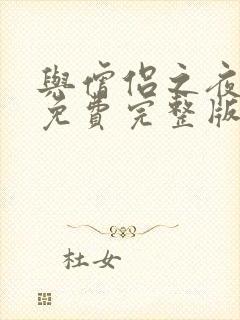 與僧侶之夜
免費完整版
杜女